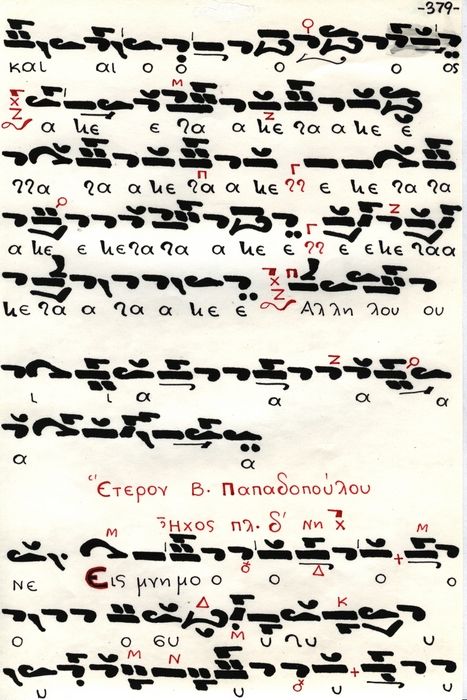 -379-
και αι ο ο ο ο ος
α κε ε γα α κε γα α κε ε
γγα γα α κε γα α κε γγ ε κε γα γα
α κε ε κε γα γα α κε ε γγ ε ε κε γα α
κε γα α γα α κε ε Αλλη λου ου
ι ι α α α α
α α
Ἕτερον Β. Παπαδοπούλου
Ἦχος πλ. δ´ Νη
νε Εις μνημο ο ο ο ο
ο ο συ υ υ
υ υ υ υ